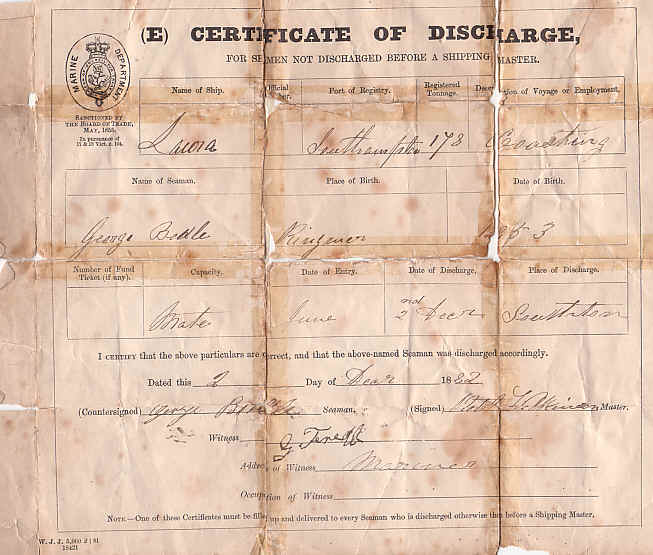 (E) CERTIFICATE OF DISCHARGE,
FOR SEAMEN NOT DISCHARGED BEFORE A SHIPPING MASTER.
MARINE DEPARTMENT
SANCTIONED BY
THE BOARD OF TRADE,
MAY, 1855.
In pursuance of
13 & 14 Vict. c. 104.
Name of Ship. Official Number. Port of Registry. Registered Tonnage. Description of Voyage or Employment.
Laura Southampton 178 Coasting
Name of Seaman. Place of Birth. Date of Birth.
George Bodle Ringmer 1853
Number of Fund Ticket (if any). Capacity. Date of Entry. Date of Discharge. Place of Discharge.
Mate June 2nd Decr Southton
I CERTIFY that the above particulars are correct, and that the above-named Seaman was discharged accordingly.
Dated this 2 Day of Decr 1882
(Countersigned) George Seaman, (Signed) Master.
Witness
Address of Witness Mariner
Occupation of Witness
NOTE.—One of these Certificates must be filled up and delivered to every Seaman who is discharged otherwise than before a Shipping Master,
W. J. J. 5,000 2 | 81
18421